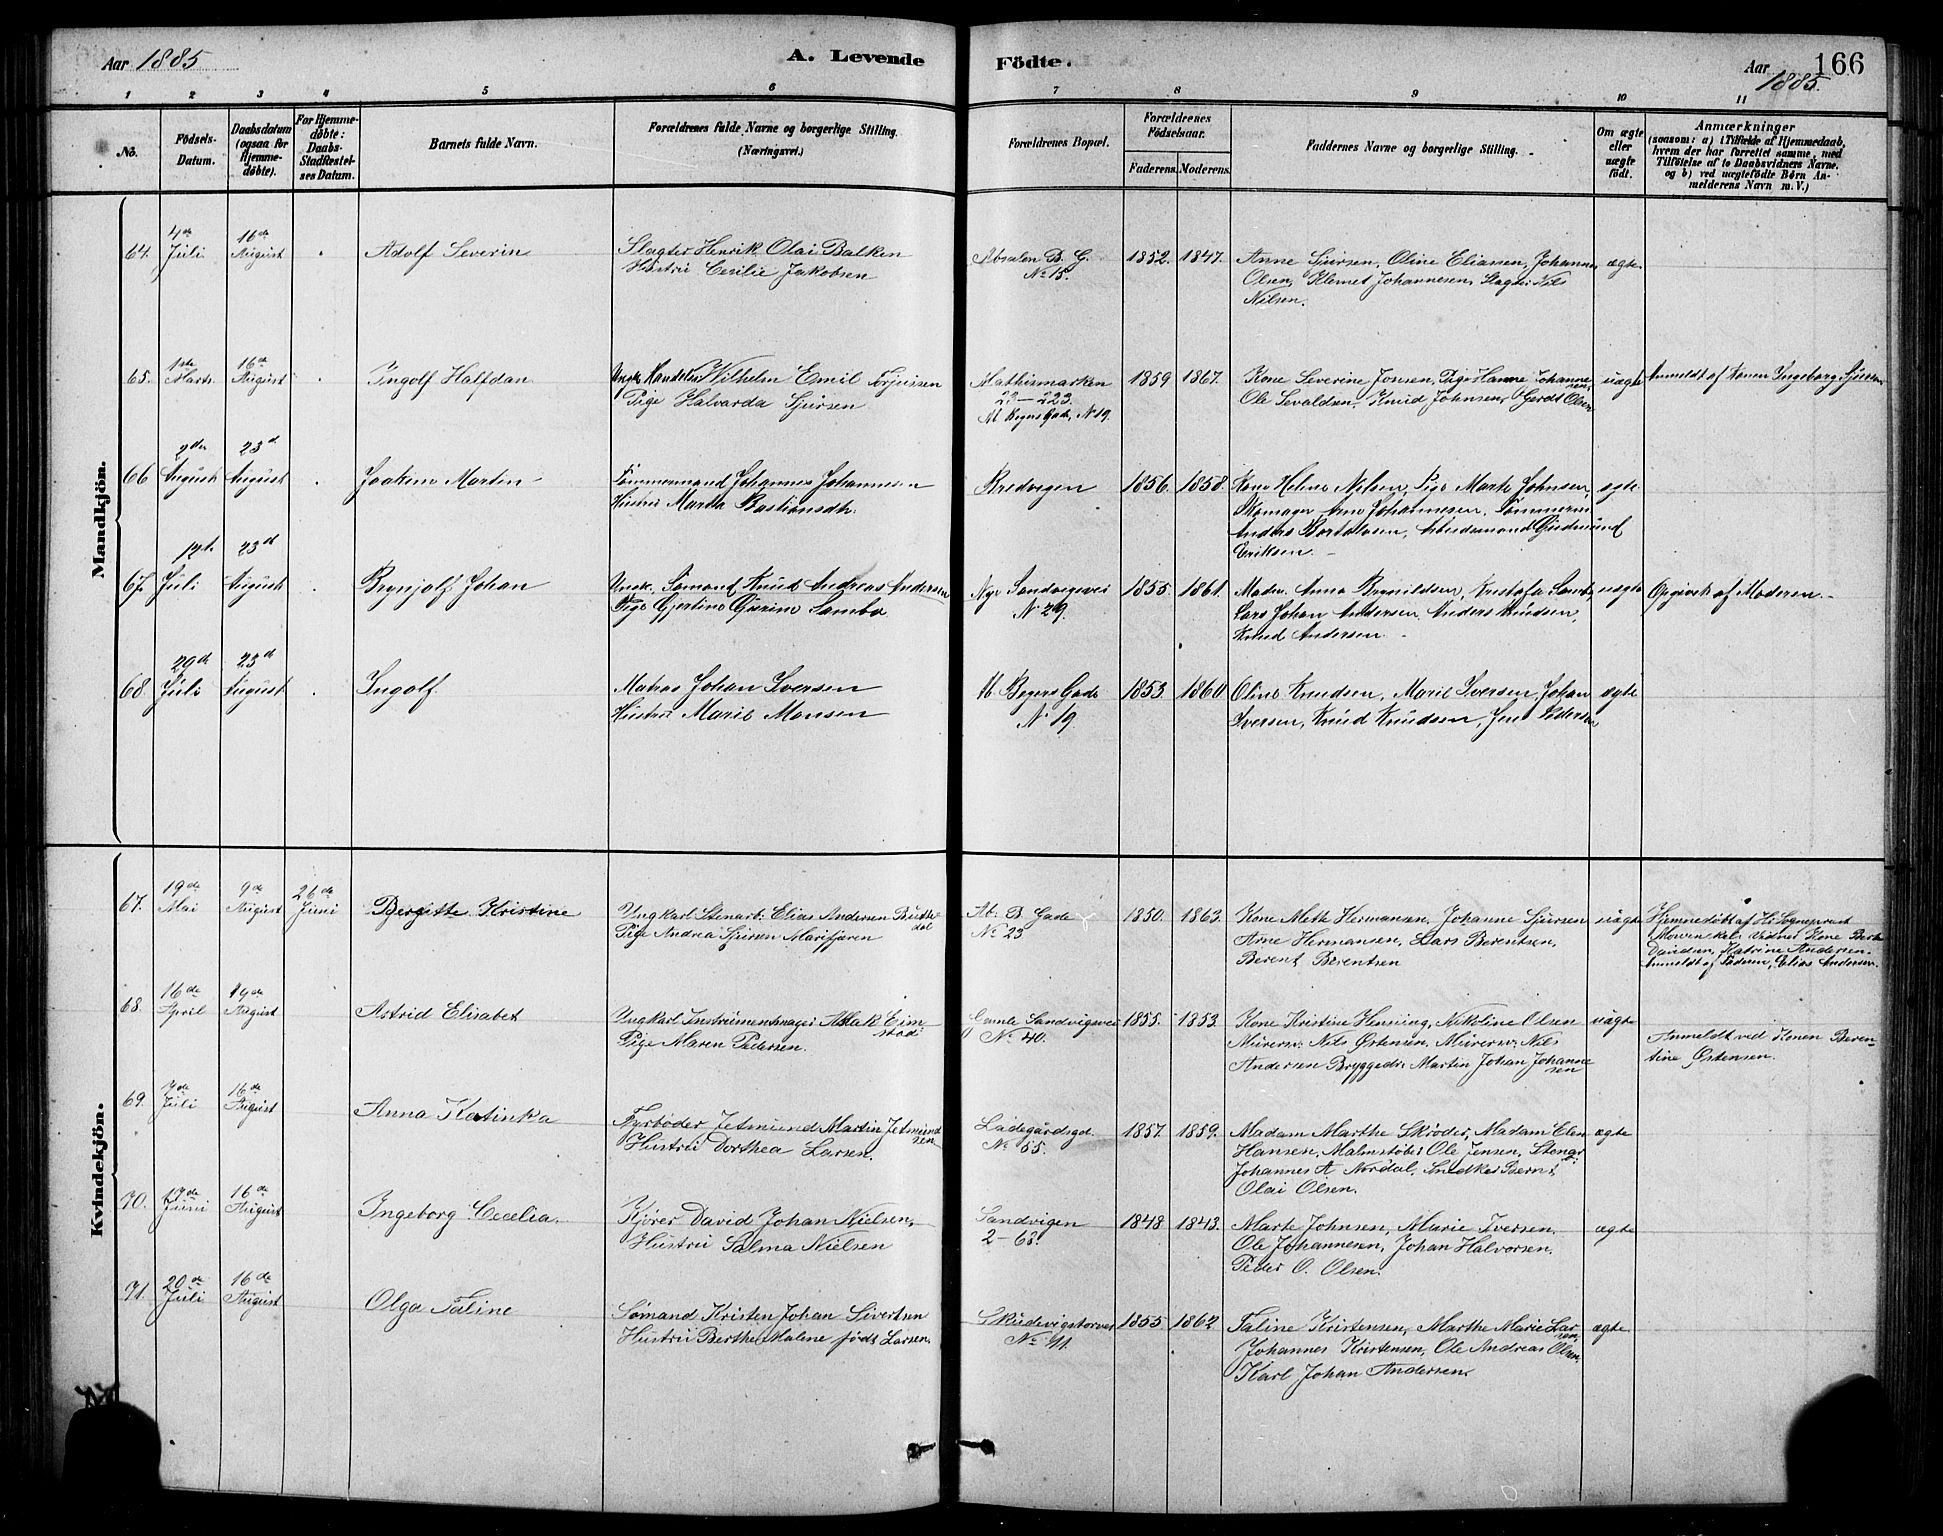 Aar 1885
A. Levende
Födte.
Aar 1885.
166
1 2 3 4 5 6 7 8 9 10 11
No.
Födsels-
Datum.
Daabsdatum
(ogsaa for
Hjemme-
døbte).
For Hjemme-
døbte:
Daabs-
Stadfæstel-
ses Datum.
Barnets fulde Navn.
Forældrenes fulde Navne og borgerlige Stilling.
(Næringsvei.)
Forældrenes Bopæl.
Forældrenes
Födselsaar.
Faderens. Moderens.
Faddernes Navne og borgerlige Stilling.
Om ægte
eller
uægte
födt.
Anmærkninger
(saasom: a) i Tilfælde af Hjemmedaab,
hvem der har forrettet samme, med
Tilföielse af to Daabsvidners Navne,
og b) ved uægtefödte Börn An-
melderens Navn m. V.)
Mandkjön.
64. 4de Juli 16de August Adolf Severin
Slagter Henrik Olai Balken
Hustru Cecilie Jakobsen
Absalon B. G.
No 15.
1852. 1847.
Anne Sjursen, Oline Eliassen, Johannes
Olsen, Klemet Johannesen, Slagter Nils
Nilsen.
ægte
65. 1ste Marts 16de August Ingolf Halfdan
Ungk. Handelsm Wilhelm Emil Torjusen
Pige Halvarda Sjursen
Mathismarken
22-223.
M Bøgers Gade, No 19.
1859 1867.
Kone Severine Jonsen, Pige Hanne Johanne-
sen,
Ole Sevaldsen, Knud Johnsen, Gerdt Olsen
uægte
Anmeldt af Konen Ingeborg Sjursen
66 2den August 23d August Joakim Martin
Tömmermand Johannes Johannesen
Hustru Marta Bastiansdtr.
Bredvigen
1856. 1858.
Kone Helene Nilsen, Pige Marte Johnsen,
Skomager Arne Johannesen, Tömmerm
Anders Bertelsen, Arbeidsmand Gudmund
Eriksen.
ægte
67. 12te Juli 23d August Brynjolf Johan
Ungk. Sömand Knud Andreas Andersen
Pige Gjertine Gurine Sambo
Nye Sandvigsvei
No 29.
1855. 1861.
Mader. Anna Brynildsen, Kristofa Sambo,
Lars Johan Andersen, Anders Knudsen,
Knud Andersen.
uægte
Opgivet af Moderen.
68. 29de Juli 23d August Ingolf.
Matros Johan Iversen
Hustru Marie Monsen
M. Bøgers Gade
No 19
1853 1860
Oline Knudsen, Marie Iversen, Johan
Iversen, Knud Knudsen, Jens Pedersen
ægte
Kvindekjön.
67. 19de Mai 9de August 26de Juni Bergitte Kristine
Ungkarl Stenarb: Elias Andersen Budde-
dal
Pige Andrea Sjursen Marifjæren
Ab: B. Gade
No 23
1850. 1863.
Kone Mette Hermansen, Johanne Sjursen
Arne Hermansen, Lars Berentsen,
Berent Berentsen
uægte
Hjemmedöbt af Hr Sogneprest
Mowinkel. Vidner Kone Berte
Davidsen, Katrine Andersen.
Anmeldt af Faderen, Elias Andersen.
68. 16de April 19de August Astrid Elisabet
Ungkarl Instrumentmager Aslak Eim-
stad
Pige Maren Pedersen.
Gamle Sandvigsvei
No 40.
1855. 1853.
Kone Kristine Henning, Nikoline Olsen
Murersv: Nils Østensen, Murersv: Nils
Andersen Bryggedr: Martin Johan Johanne-
sen
uægte
Anmeldt ved Konen Beren-
tine Østensen.
69. 7de Juli 16de August Anna Katinka
Fyrböder Jetmund Martin Jetmund-
sen
Hustru Dorthea Larsen.
Ladegårdsgd.
No 55.
1857. 1859.
Madam Marthe Skröder, Madam Elen
Hansen, Malmstöber Ole Jensen, Stenar:
Johannes A Nordal, Snedker Bernt
Olai Olsen.
ægte
70. 17de Juni 16de August Ingeborg Cecelia.
Kjörer David Johan Nielsen,
Hustru Salma Nielsen
Sandvigen
2-63.
1848 1843.
Marte Johnsen, Marie Iversen,
Ole Johannesen, Johan Halvorsen.
Peder O. Olsen.
ægte
71. 20de Juli 16de August Olga Taline
Sømand Kristen Johan Sivertsen
Hustru Berthe Malene født Larsen.
Skudevigstorvet
No 11.
1855 1862
Taline Kristensen, Marthe Marie Lar-
sen,
Johannes Kristensen, Ole Andreas Olsen,
Karl Johan Andersen.
ægte